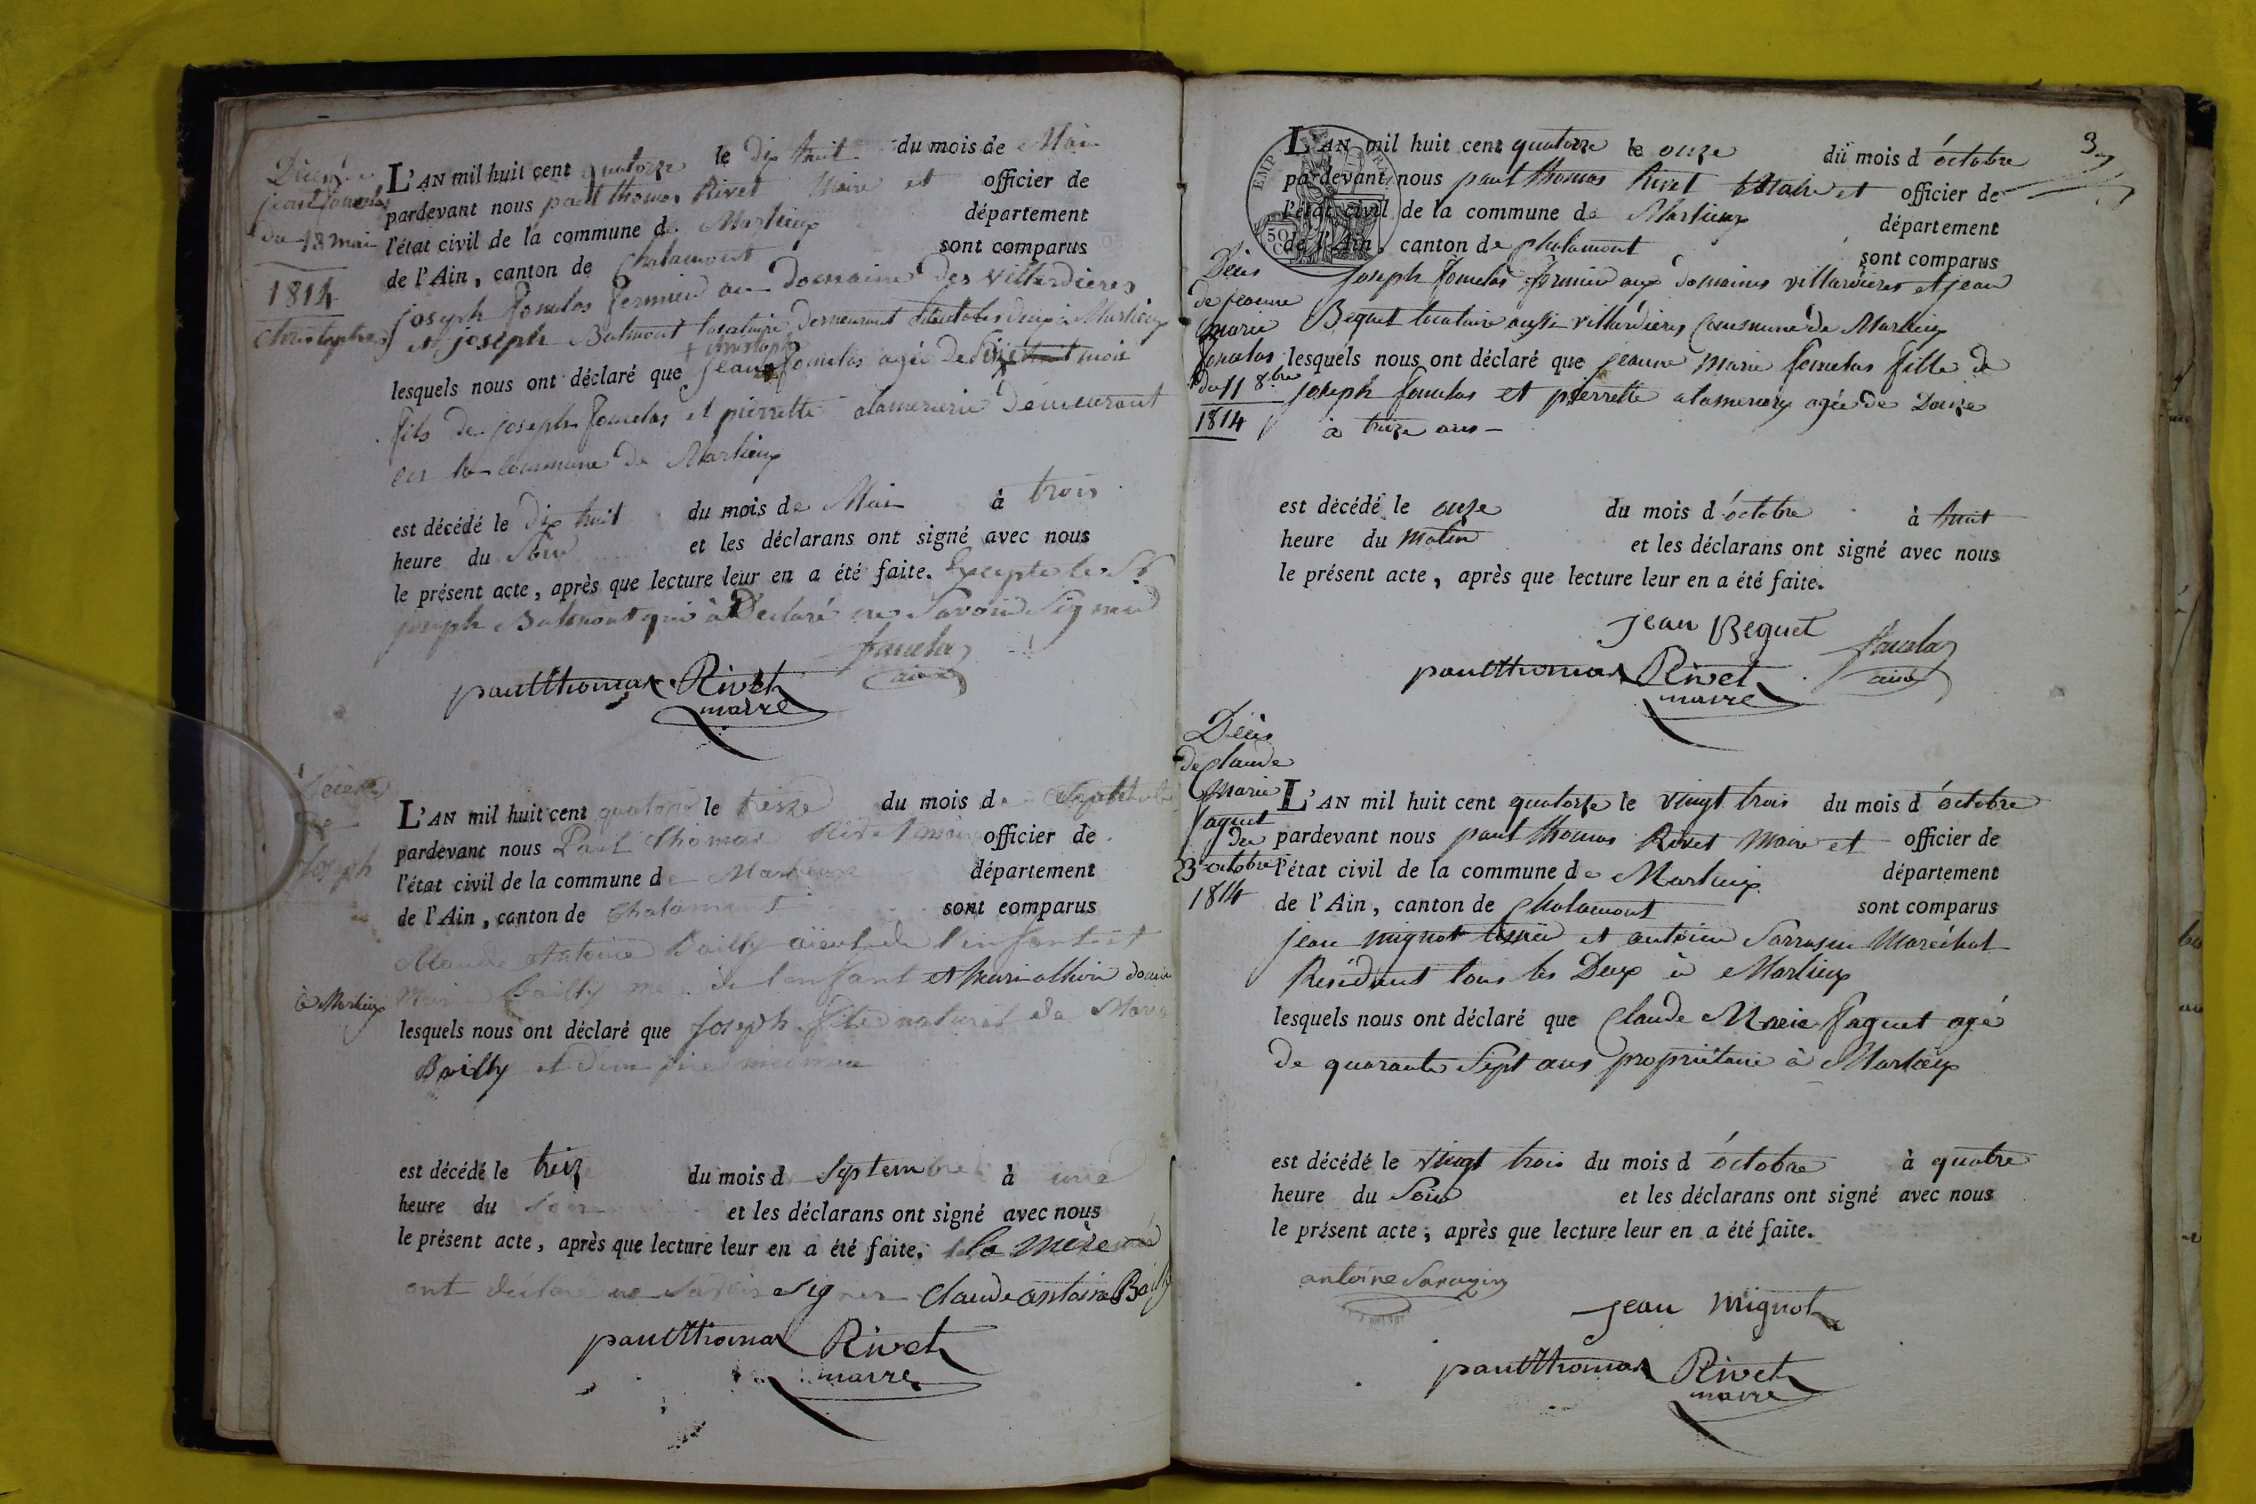 Décès de
jean fouculas
du 18 mai
1814
christophe
L'AN mil huit cent quatorze le dix huit du mois de Mai
pardevant nous paul thomas Rivet Maire et officier de
l'état civil de la commune de Marlieux département
de l'Ain, canton de Chalamont sont comparus
joseph fouculas fermier au Domaine des villardieres
et joseph Balmont locataire demeurant tous les deux à Marlieux
+ christophe
lesquels nous ont déclaré que jean fouculas agé de mois
fils de joseph fouculas et pierrette alamercery demeurant
en la commune de Marlieux
est décédé le dix huit du mois de Mai à trois
heure du Soir et les déclarans ont signé avec nous
le présent acte, après que lecture leur en a été faite. Excepté le Sr
joseph Balmont qui à Déclaré ne Savoir Signer
fouculas
ainé
paul thomas Rivet
maire
Décès
de
Joseph
à Marlieux
L'AN mil huit cent quatorze le treize du mois de Septembre
pardevant nous Paul Thomas Rivet maire officier de
l'état civil de la commune de Marlieux département
de l'Ain, canton de Chalamont sont comparus
Claude Antoine Bailly aïeul de l'enfant et
Marie Bailly mere de l'enfant et
lesquels nous ont déclaré que Joseph fils naturel de Marie
Bailly et d'un père inconnu
est décédé le treize du mois d Septembre à une
heure du Soir et les déclarans ont signé avec nous
le présent acte, après que lecture leur en a été faite. la mere
ont déclaré ne Savoir signer Claude antoine Bailly
paul thomas Rivet
maire
3
EMP
50
C
L'AN mil huit cent quatorze le onze du mois d'octobre
pardevant nous paul thomas Rivet Maire et officier de
l'état civil de la commune de Marlieux département
de l'Ain, canton de Chalamont sont comparus
Décès
de jeanne
marie
fouculas
du 11 8.bre
1814
Joseph fouculas fermier aux domaines villardieres et jean
Bequet locataire aussi villardieres Commune de Marlieux
lesquels nous ont déclaré que jeanne marie fouculas fille de
joseph fouculas et pierrette alamercery agée de Douze
à treize ans —
est décédé le onze du mois d'octobre à huit
heure du matin et les déclarans ont signé avec nous
le présent acte, après que lecture leur en a été faite.
jean Bequet
fouculas
ainé
paul thomas Rivet
maire
Décès
de Claude
Marie
faquet
du
23 octobre
1814
L'AN mil huit cent quatorze le vingt trois du mois d'octobre
pardevant nous paul thomas Rivet Maire et officier de
l'état civil de la commune de Marlieux département
de l'Ain, canton de Chalamont sont comparus
jean mignot et antoine Sarrasin Maréchal
Résidant tous les Deux à Marlieux
lesquels nous ont déclaré que Claude Marie faquet agé
de quarante Sept ans propriétaire à Marlieux
est décédé le vingt trois du mois d'octobre à quatre
heure du Soir et les déclarans ont signé avec nous
le présent acte, après que lecture leur en a été faite.
antoine Sarazin
jean mignot
paul thomas Rivet
maire